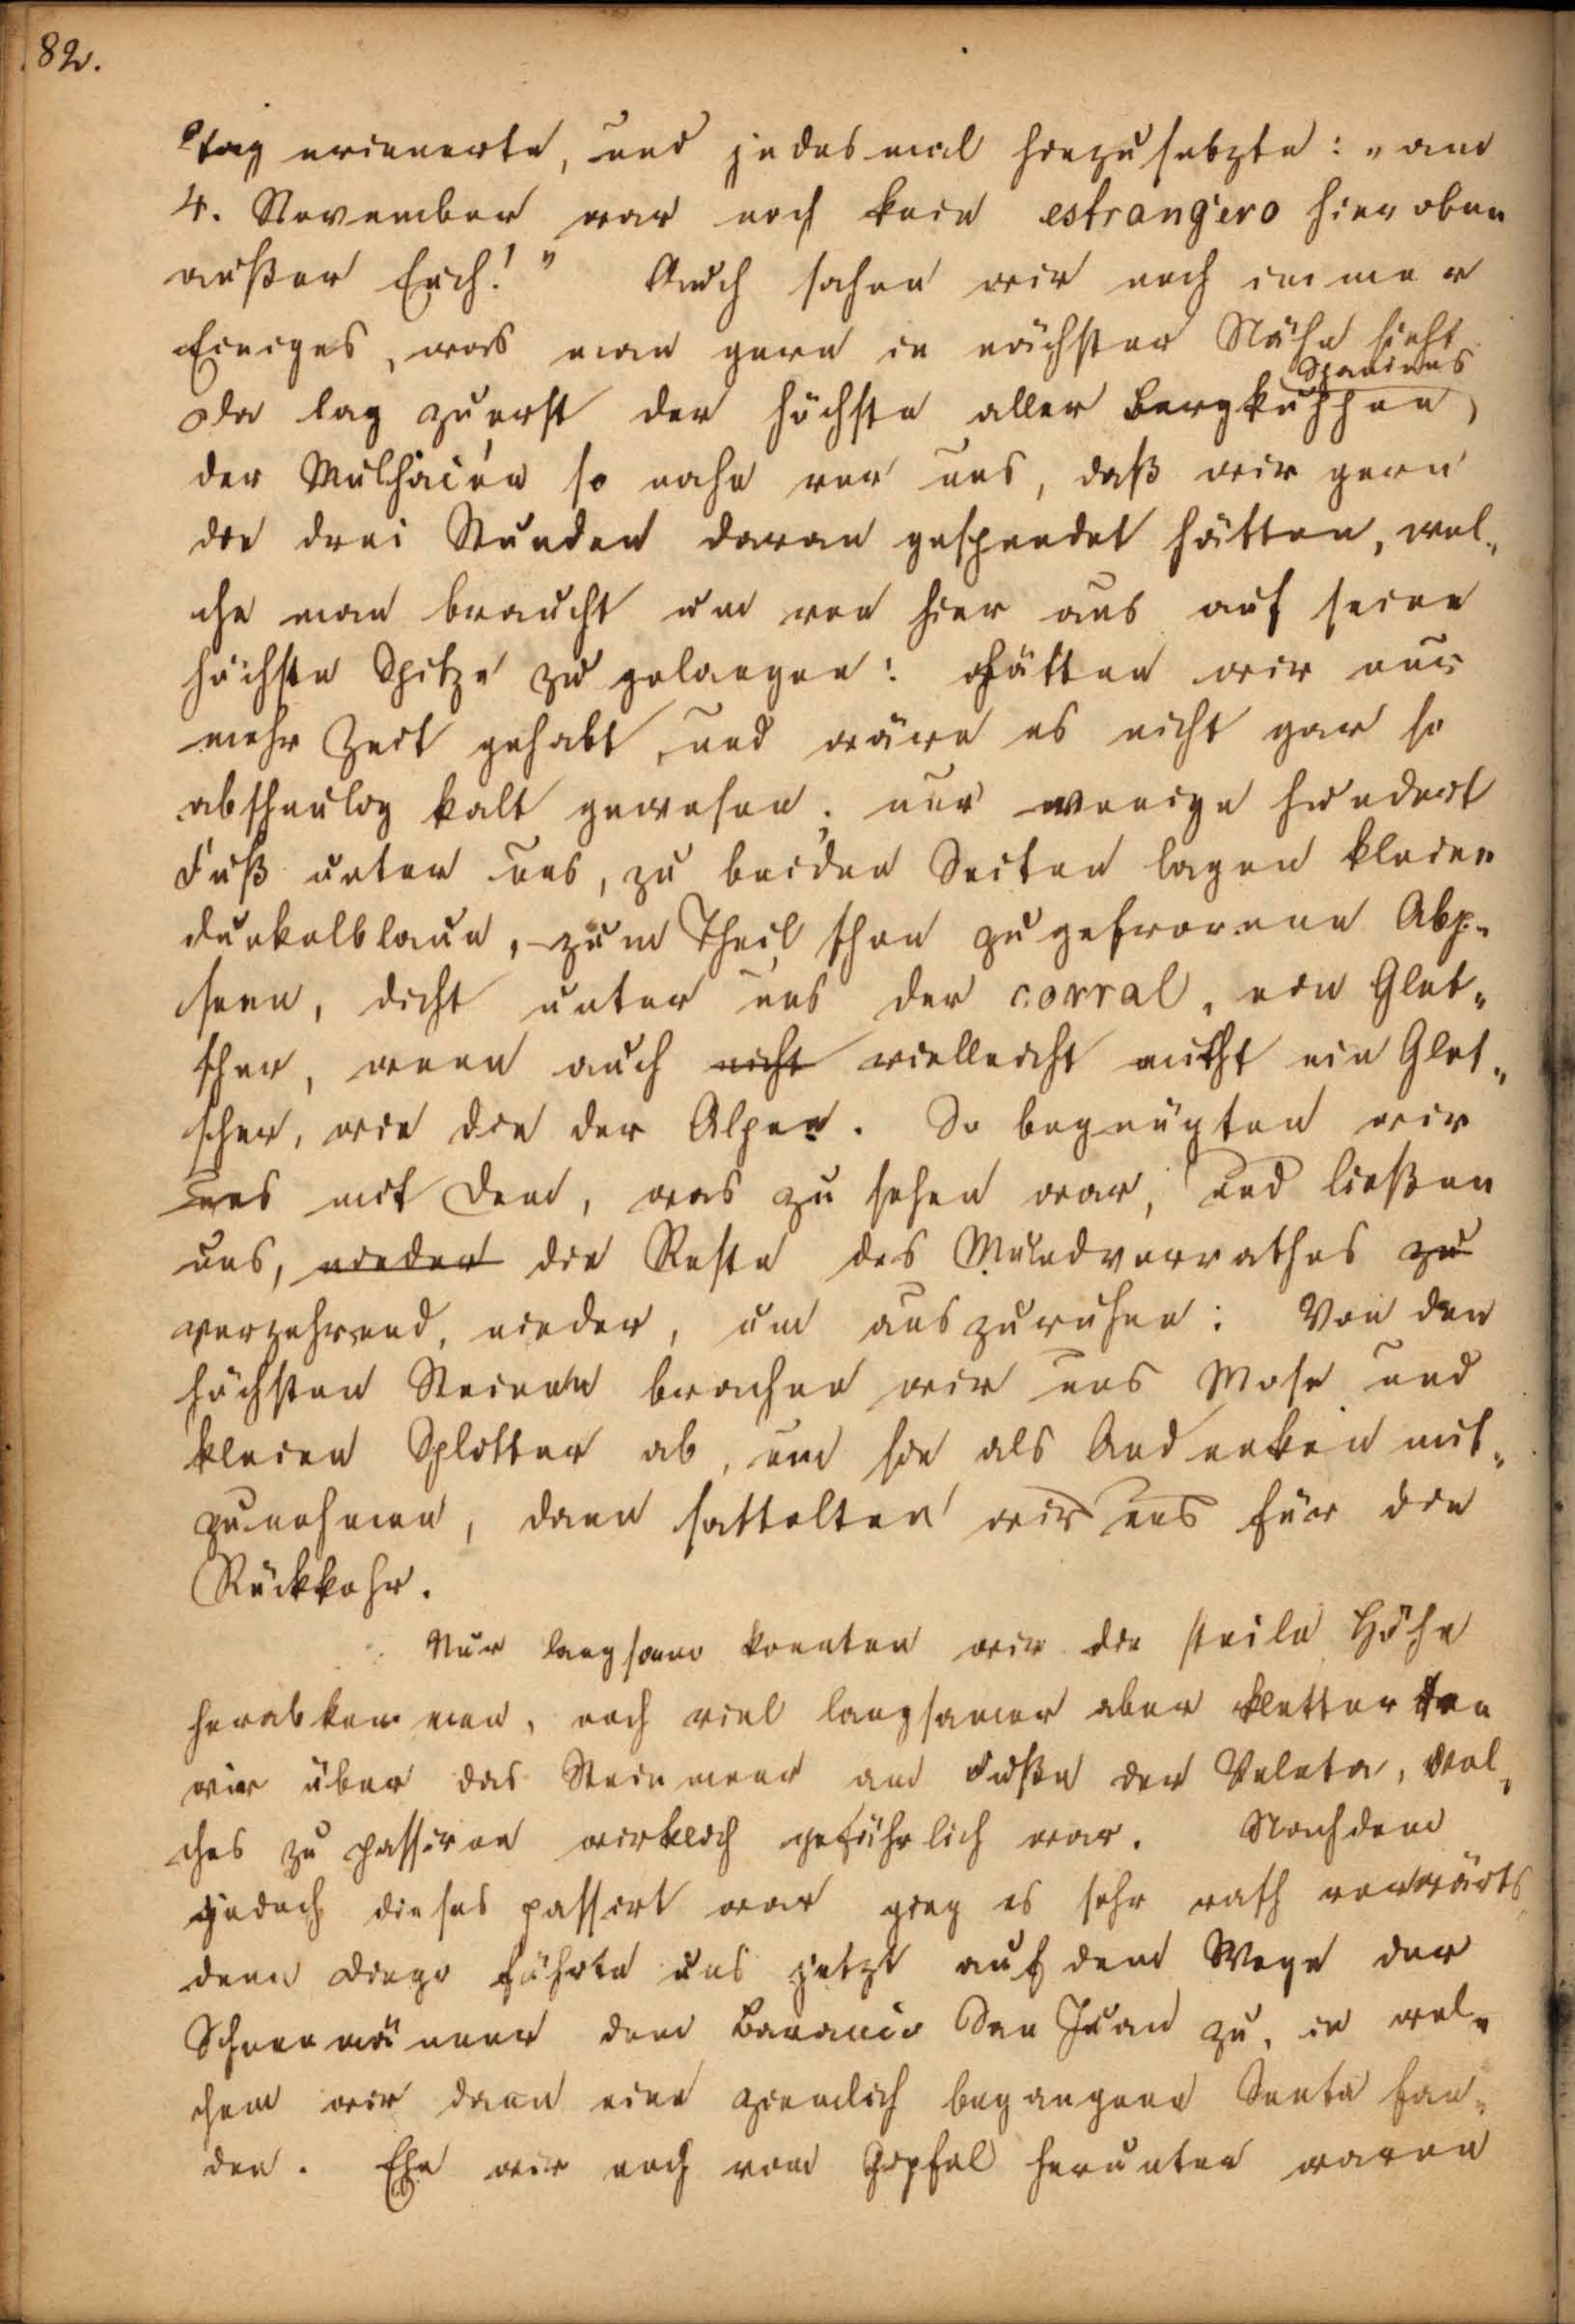 82.
tag erinnerte, und jedesmal hinzusetzte: „am
4. November war noch kein estrangero hier oben
außer Euch!" Auch sahen wir noch immer
Einiges, was man gern in nächster Nähe sieht.
Spaniens
Da lag zuerst der höchste aller Bergkuppen,
der Mulhacén so nahe vor uns, daß wir gern
die drei Stunden daran gespendet hätten, wel-
che man braucht um von hier aus auf seine
höchste Spitze zu gelangen: hätten wir nur
mehr Zeit gehabt, und wäre es nicht gar so
abscheulig kalt gewesen; nur wenige hundert
Fuß unter uns, zu beiden Seiten lagen kleine
dunkelblaue, zum Theil schon zugefrorene Alp-
seen, dicht unter uns der corral, ein Glet-
scher, wenn auch nicht vielleicht nicht ein Glet-
scher, wie die der Alpen. So begnügten wir
uns mit dem, was zu sehen war, und ließen
uns, nieder die Reste des Mundvorrathes zu
verzehrend, nieder, um auszuruhen: Von den
höchsten Steinen brachen wir uns Mose und
kleine Splitter ab, um sie als Andenken mit-
zunehmen, dann sattelten wir uns für die
Rückkehr.
Nur langsam konnten wir die steile Höhe
herabkommen, noch viel langsamer aber kletterten
wir über das Steinmeer am Fuße der Veleta, wel-
ches zu passiren wirklich gefährlich war. Nachdem
jedoch dieses passirt war ging es sehr rasch vorwärts,
denn Diego führte uns jetzt auf dem Wege der
Schneemänner dem Baranco San Juan zu, in wel-
chem wir dann eine ziemlich begangene Senta fan-
den. Ehe wir noch vom Gipfel herunter waren